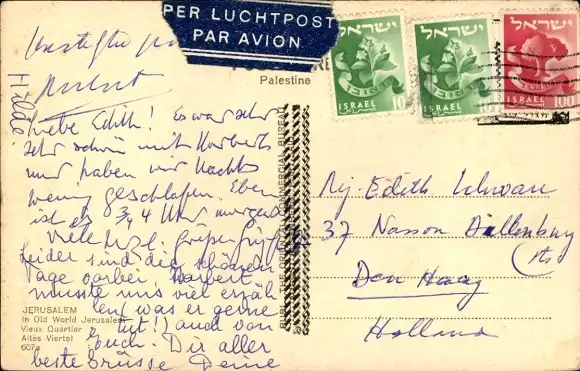 PER LUCHTPOST
PAR AVION
ישראל
ISRAEL
10
ישראל
ISRAEL
10
ישראל
ISRAEL
100
Palestine
Herbert
Hilde
Liebe Edith! Es war sehr
sehr schön mit Norbert
und haben wir Nachts
wenig geschlafen. Eben
ist es 3/4 4 Uhr morgens
Viele
Leider sind die schönen
Tage vorbei, Norbert
musste uns viel erzäh
len (was er gerne
tut!) auch von
Euch. Dir aller
beste Grüsse Deine
JERUSALEM
In Old World Jerusalem
Vieux Quartier
Altes Viertel
607a
COMMERCIAL BUREAU
Edith
37 Nassau Dillenburg
Den Haag
Holland